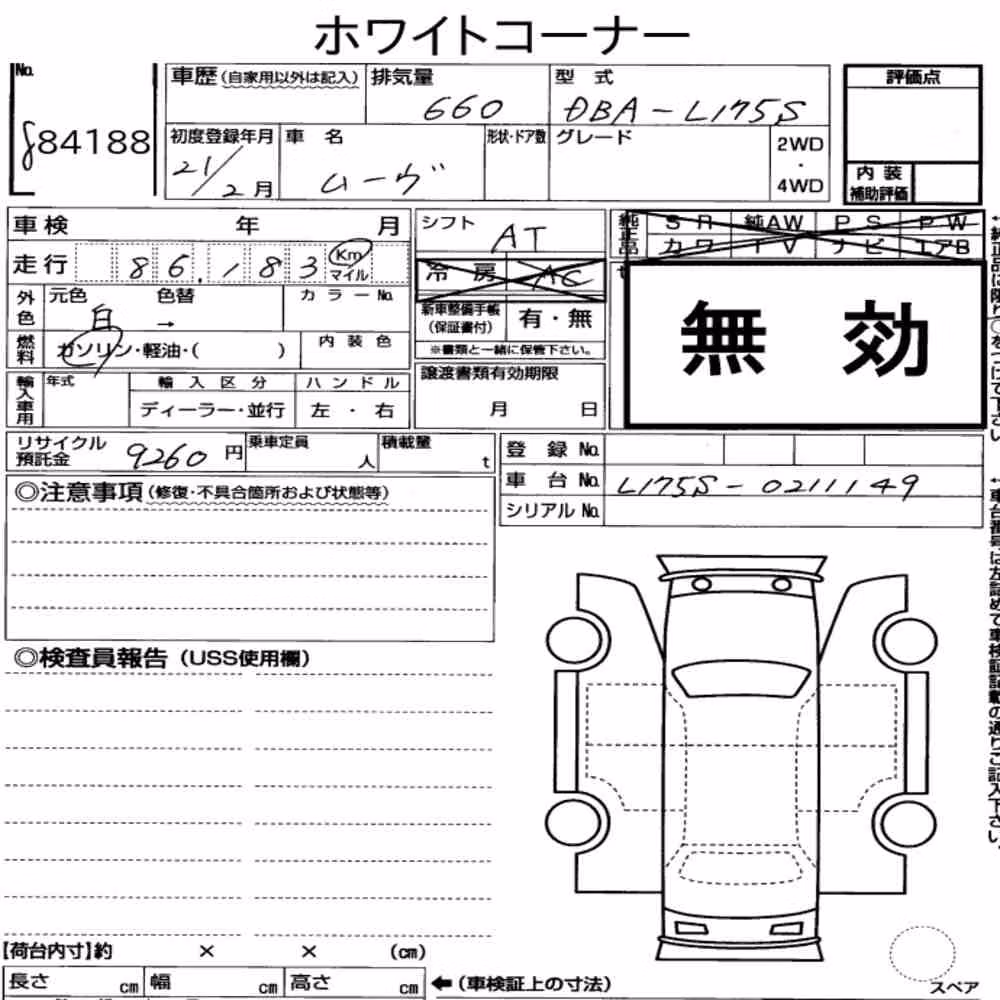 ホワイトコーナー
No.
884188
車歴(自家用以外は記入)
排気量
660
型 式
DBA-L175S
評価点
初度登録年月
21/2月
車 名
ムーヴ
形状・ドア数
グレード
2WD
・
4WD
内 装
補助評価
車検 年 月
シフト
AT
純正品
SR 純AW PS PW
カワ TV ナビ エアB
走行 86,183 Km マイル
冷 房 AC
外色
元色 白
色替 →
カラーNo.
新車整備手帳
(保証書付)
有・無
※書類と一緒に保管下さい。
無 効
燃料
ガソリン・軽油・( )
内 装 色
輸入車用
年式
輸 入 区 分
ディーラー・並行
ハ ン ド ル
左 ・ 右
譲渡書類有効期限
月 日
リサイクル
預託金
9260円
乗車定員
人
積載量
t
登 録 No.
車 台 No. L175S-0211149
シリアル No.
◎注意事項(修復・不具合箇所および状態等)
◎検査員報告(USS使用欄)
【荷台内寸】約 × × (cm)
長さ cm 幅 cm 高さ cm
←(車検証上の寸法)
スペア
車台番号は左詰めで車検証記載の通りご記入下さい。